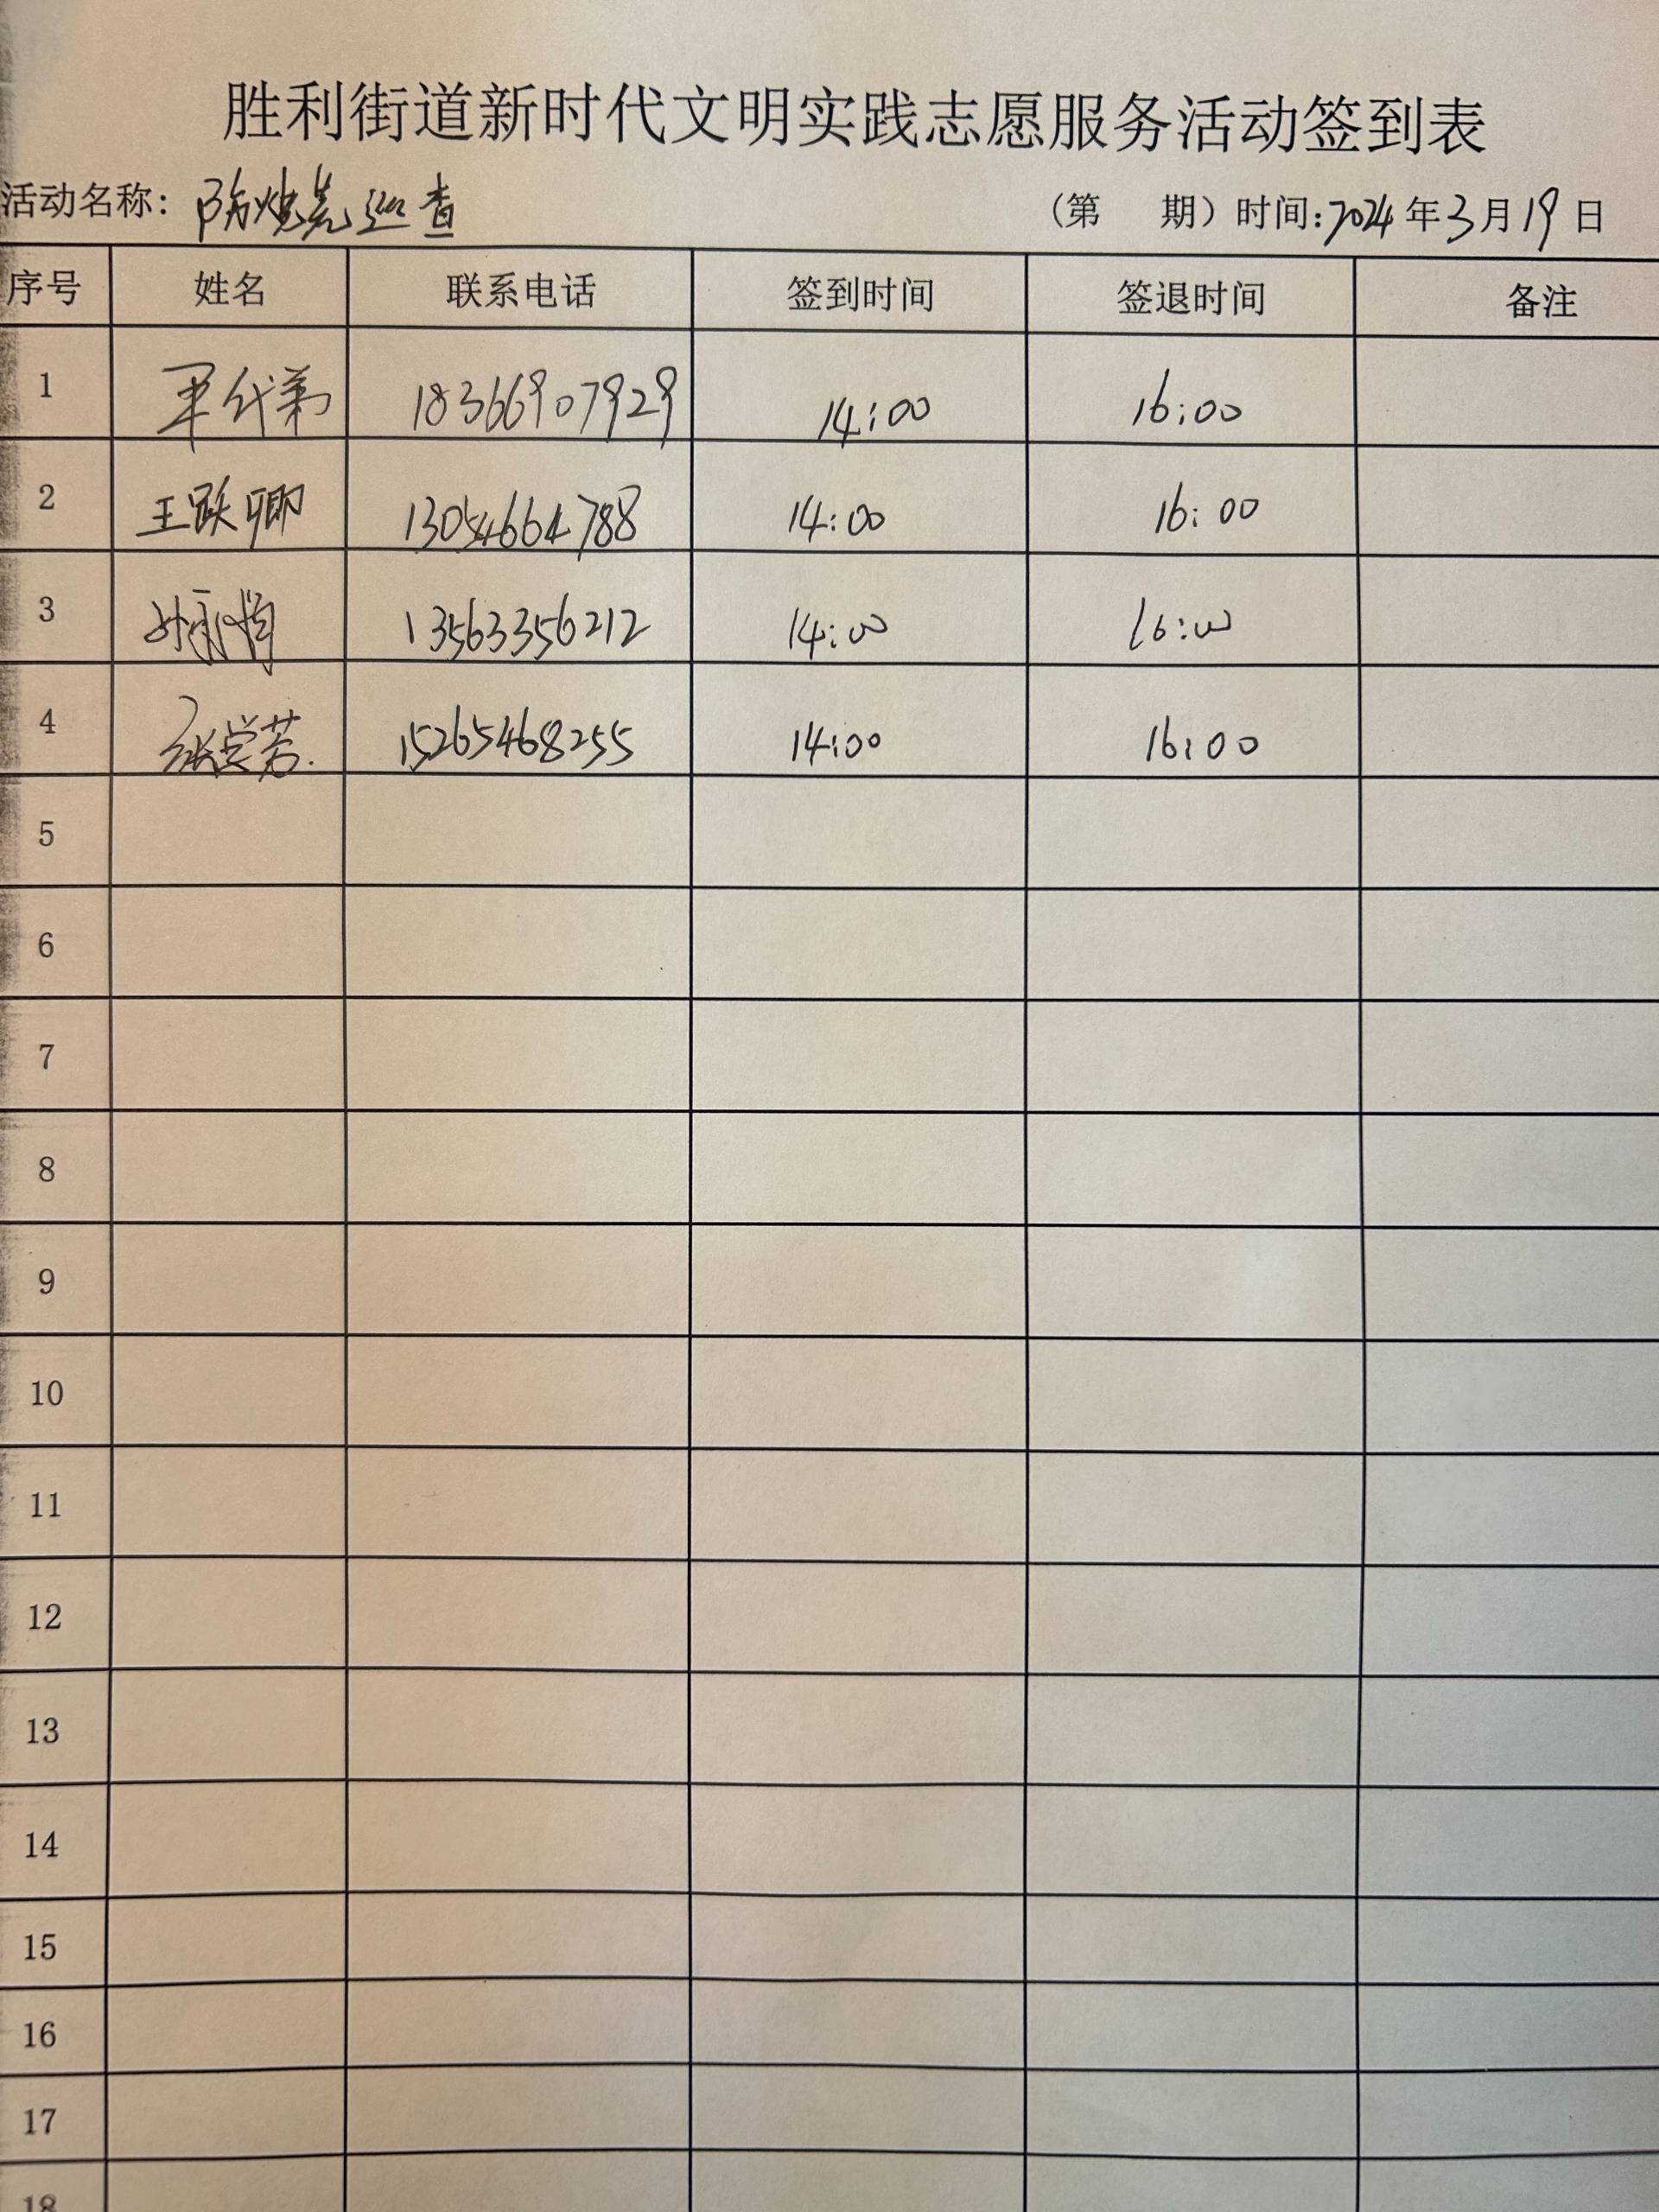 胜利街道新时代文明实践志愿服务活动签到表
活动名称：防烧荒巡查 （第 期）时间：2024年3月19日
序号 姓名 联系电话 签到时间 签退时间 备注
1 18366907929 14:00 16:00
2 王跃卿 13054664788 14:00 16:00
3 13563356212 14:00 16:00
4 张学芳. 15265468255 14:00 16:00
5
6
7
8
9
10
11
12
13
14
15
16
17
18